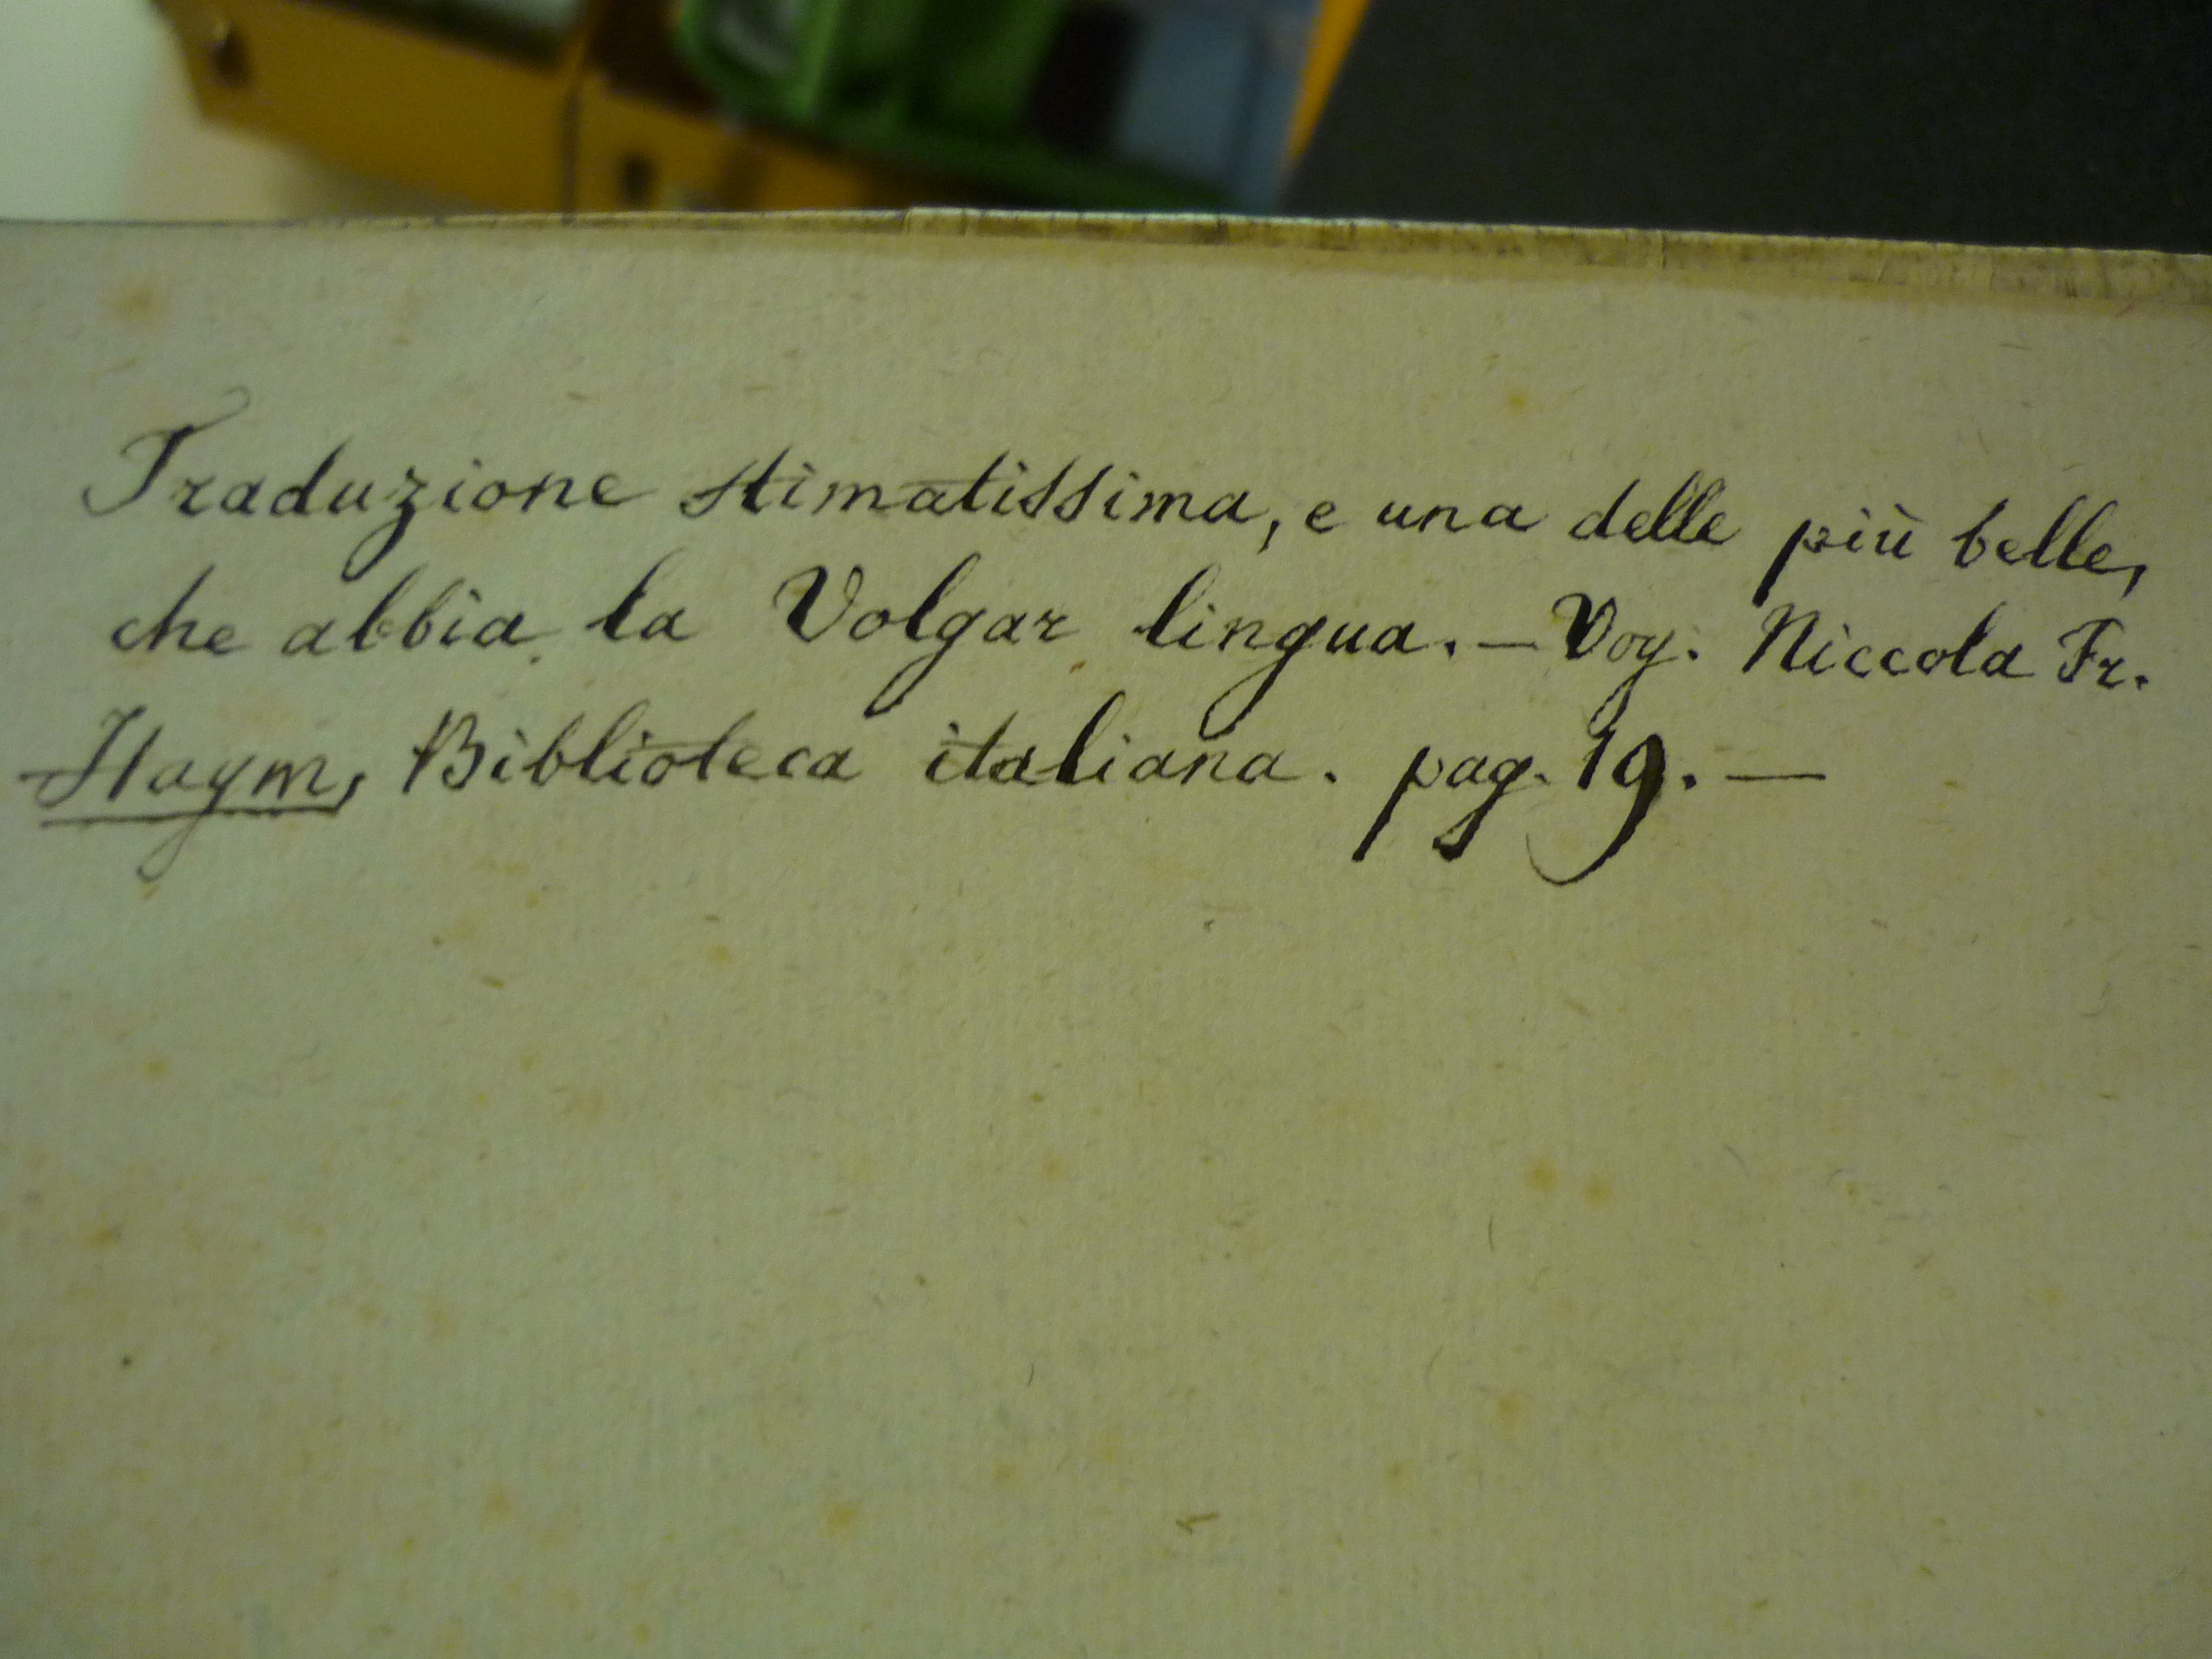 Traduzione stimatissima, e una delle più belle,
che abbia la Volgar lingua. — Voy. Niccola Fr.
Haym, Biblioteca italiana. pag. 19. —